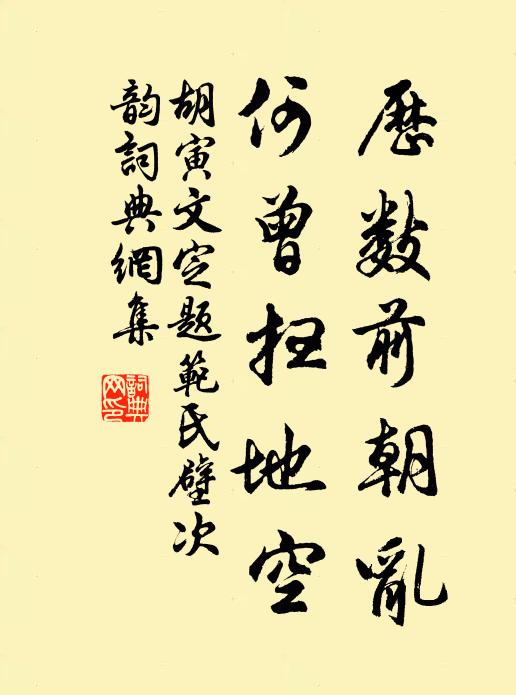 歷數前朝亂
何曾扫地空
胡寅文定題範民壁次
韵詞典網集
詞典网印